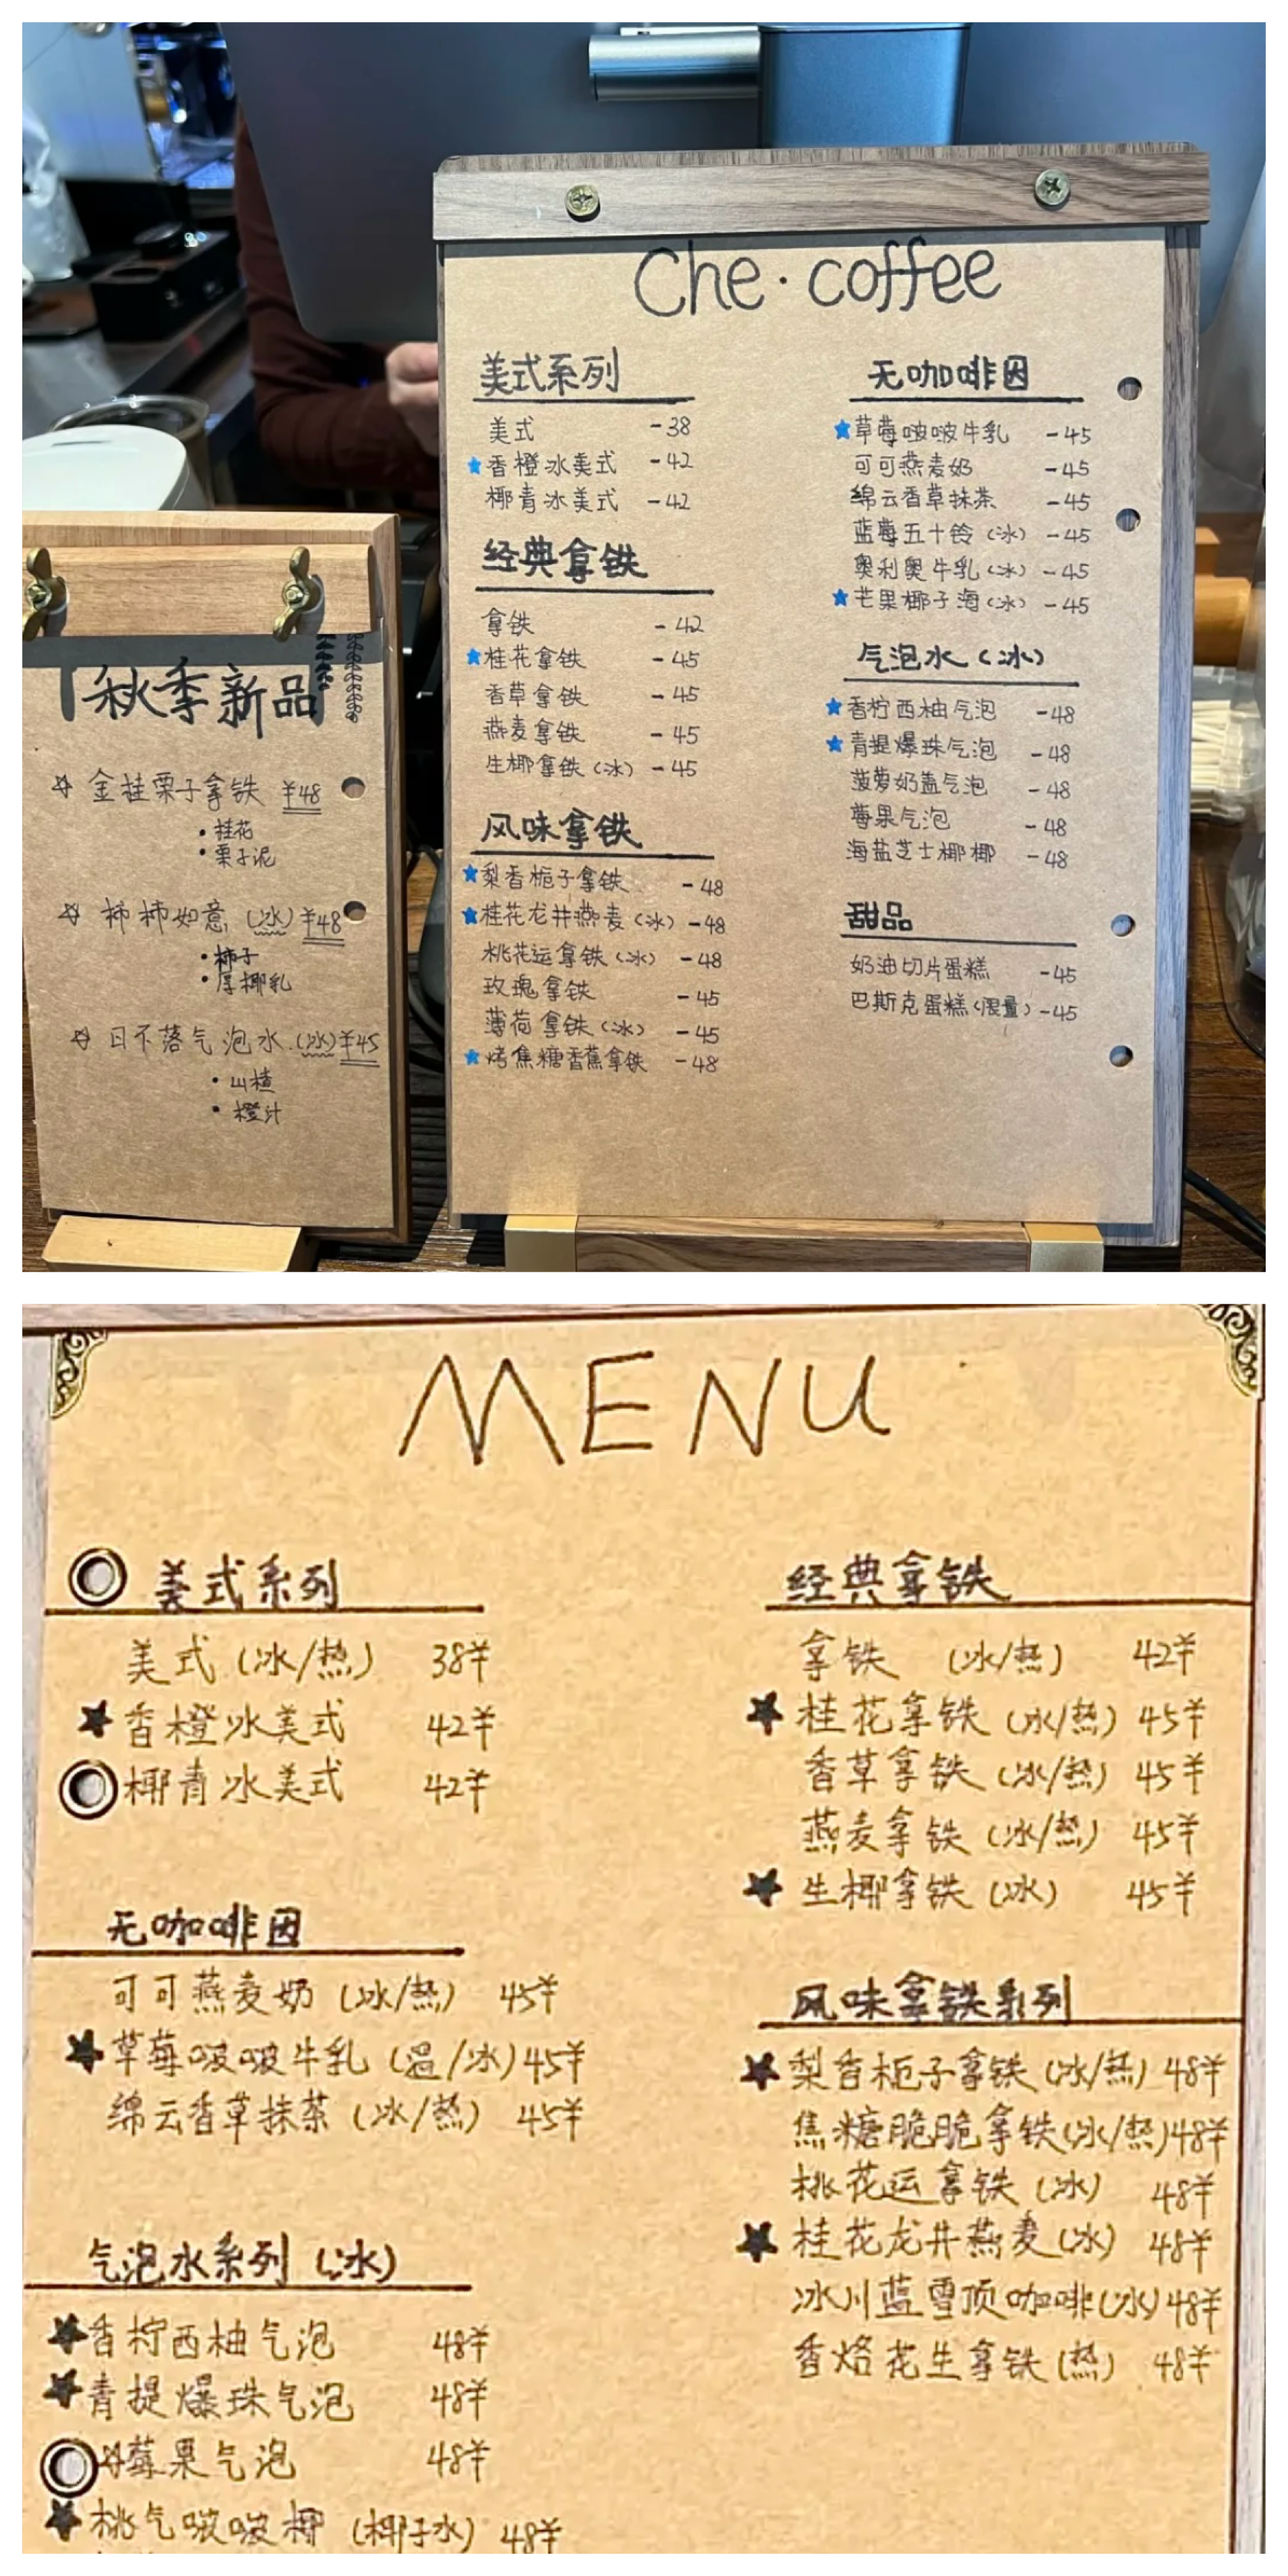 Che·coffee
美式系列
美式 -38
★香橙冰美式 -42
椰青冰美式 -42
经典拿铁
拿铁 -42
★桂花拿铁 -45
香草拿铁 -45
燕麦拿铁 -45
生椰拿铁(冰) -45
风味拿铁
★梨香栀子拿铁 -48
★桂花龙井燕麦(冰) -48
桃花运拿铁(冰) -48
玫瑰拿铁 -45
薄荷拿铁(冰) -45
★烤焦糖香蕉拿铁 -48
无咖啡因
★草莓啵啵牛乳 -45
可可燕麦奶 -45
绵云香草抹茶 -45
蓝莓五十铃(冰) -45
奥利奥牛乳(冰) -45
★芒果椰子海(冰) -45
气泡水(冰)
★香柠西柚气泡 -48
★青提爆珠气泡 -48
菠萝奶盖气泡 -48
莓果气泡 -48
海盐芝士椰椰 -48
甜品
奶油切片蛋糕 -45
巴斯克蛋糕(限量) -45
「秋季新品」
☆ 金桂栗子拿铁 ¥48
·桂花
·栗子泥
☆ 柿柿如意 (冰) ¥48
·柿子
·厚椰乳
☆ 日不落气泡水 (冰) ¥45
·山楂
·橙汁
MENU
美式系列
美式(冰/热) 38¥
★香橙冰美式 42¥
椰青冰美式 42¥
无咖啡因
可可燕麦奶(冰/热) 45¥
★草莓啵啵牛乳(温/冰) 45¥
绵云香草抹茶(冰/热) 45¥
气泡水系列(冰)
★香柠西柚气泡 48¥
★青提爆珠气泡 48¥
☆莓果气泡 48¥
★桃气啵啵椰(椰子水) 48¥
经典拿铁
拿铁 (冰/热) 42¥
★桂花拿铁(冰/热) 45¥
香草拿铁(冰/热) 45¥
燕麦拿铁(冰/热) 45¥
★生椰拿铁(冰) 45¥
风味拿铁系列
★梨香栀子拿铁(冰/热) 48¥
焦糖脆脆拿铁(冰/热) 48¥
桃花运拿铁(冰) 48¥
★桂花龙井燕麦(冰) 48¥
冰川蓝雪顶咖啡(冰) 48¥
香烙花生拿铁(热) 48¥